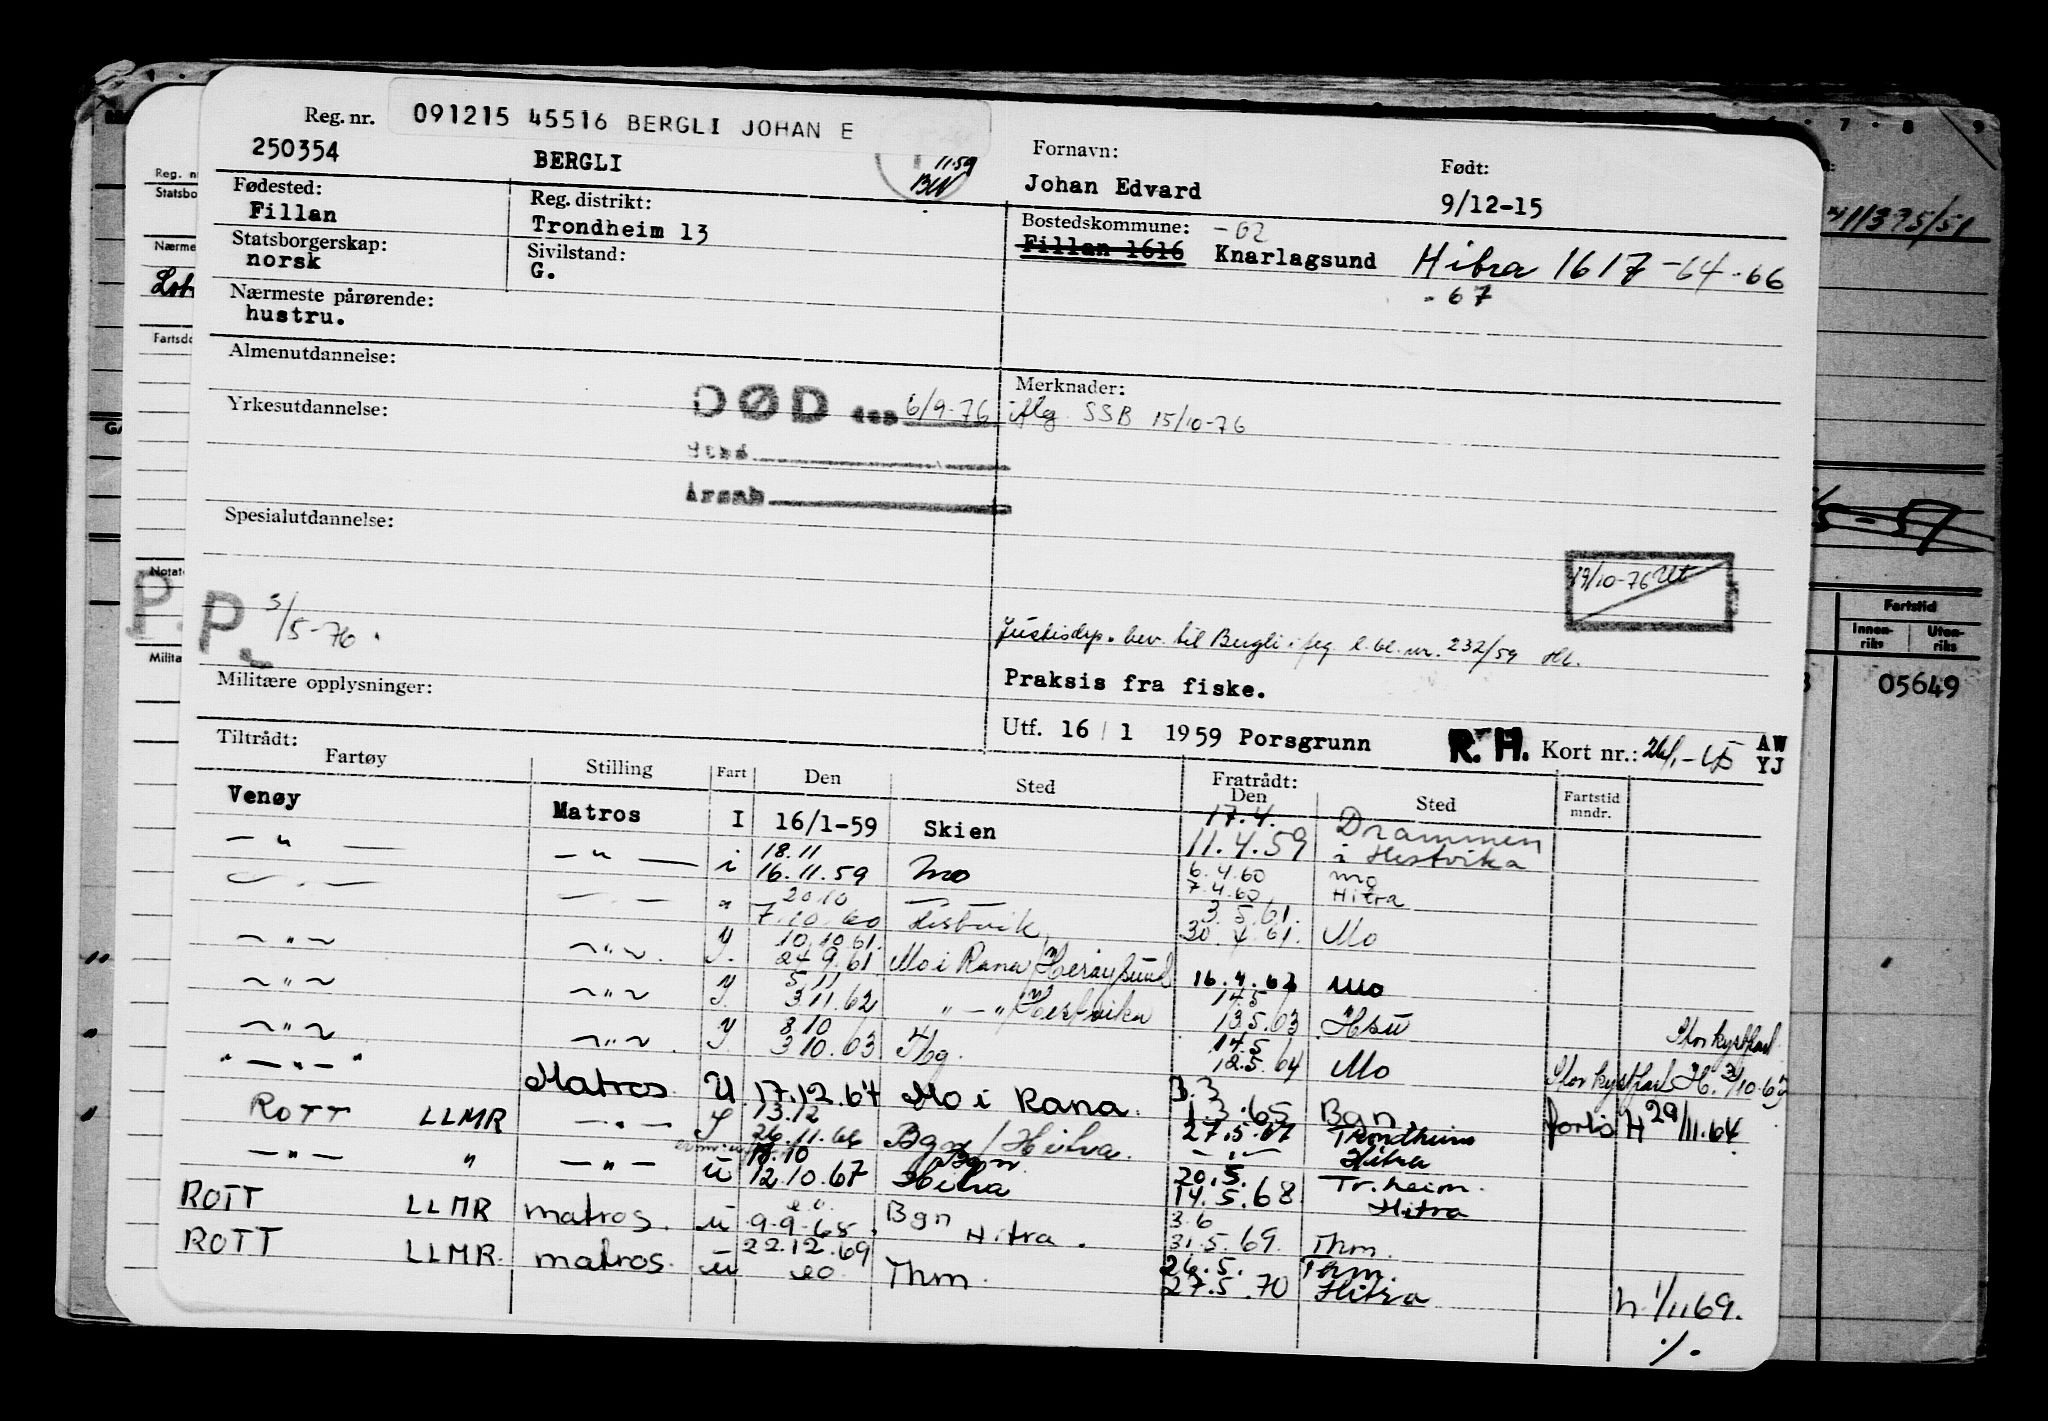 Reg. nr. 091215 45516 BERGLI JOHAN E
250354 BERGLI 11.59
Fornavn: Født:
Johan Edvard 9/12-15
Fødested: Reg. distrikt: Bostedskommune: -62
Fillan Trondheim 13 Fillan 1616 Knarlagsund Hitra 1617 -64 -66
-67
Statsborgerskap: Sivilstand:
norsk G.
Nærmeste pårørende:
hustru.
Almenutdannelse:
Merknader:
Yrkesutdannelse: DØD den 6/9-76 iflg. SSB 15/10-76
Sted
Årsak
Spesialutdannelse:
19/10-76 Ut
P. 3/5-76.
Justisdep. bev. til Bergli i flg 232/59
Militære opplysninger: Praksis fra fiske.
Utf. 16 / 1 1959 Porsgrunn R.H. Kort nr.: AW
YJ
Tiltrådt: Fratrådt:
Fartøy Stilling Fart Den Sted Den Sted Fartstid mndr.
Venøy Matros I 16/1-59 Skien 17.4. Drammen
11.4.59 i Hestvika
— " — — " — i 18.11 Mo 6.4.60 Mo
16.11.59 7.4.60 Hitra
— " — — " — " 20.10 3.5.61.
7.10.60 Hestvik 30.4.61. Mo
— " — — " — . 10.10.61.
24.9.61 Mo i Rana / Herøysund 16.4.62 Mo
— " — — " — 5.11 14.5
3.11.62 " — " / Hestvika 13.5.63 Hsu
— " — — " — . 8.10 14.5
3.10.63 Hbg. 12.5.64 Mo
" — " — " Matros U 17.12.64 Mo i Rana. 3.3
1.3.65 Bgn.
ROTT LLMR — " — 13.12
26.11.66 Bgn / Hitra. 27.5.67 Trondheim
Hitra
H 29/11.64
— " — " — " — u 12.10.67 Bgn Hitra 20.5. Tr.heim.
14.5.68 Hitra
ROTT LLMR matros. u 9.9.68. Bgn Hitra. 3.6
31.5.69. Thm.
ROTT LLMR. matros. u 22.12.69 Thm. 26.5. Thm.
27.5.70 Hitra
h 1/11 69.
Reg. nr
Statsbo
Nærme
Fartsdo
Notate
P.
Milita
7 8 9
411375/51
5-57
Fartstid
Innen-riks Uten-riks
05649